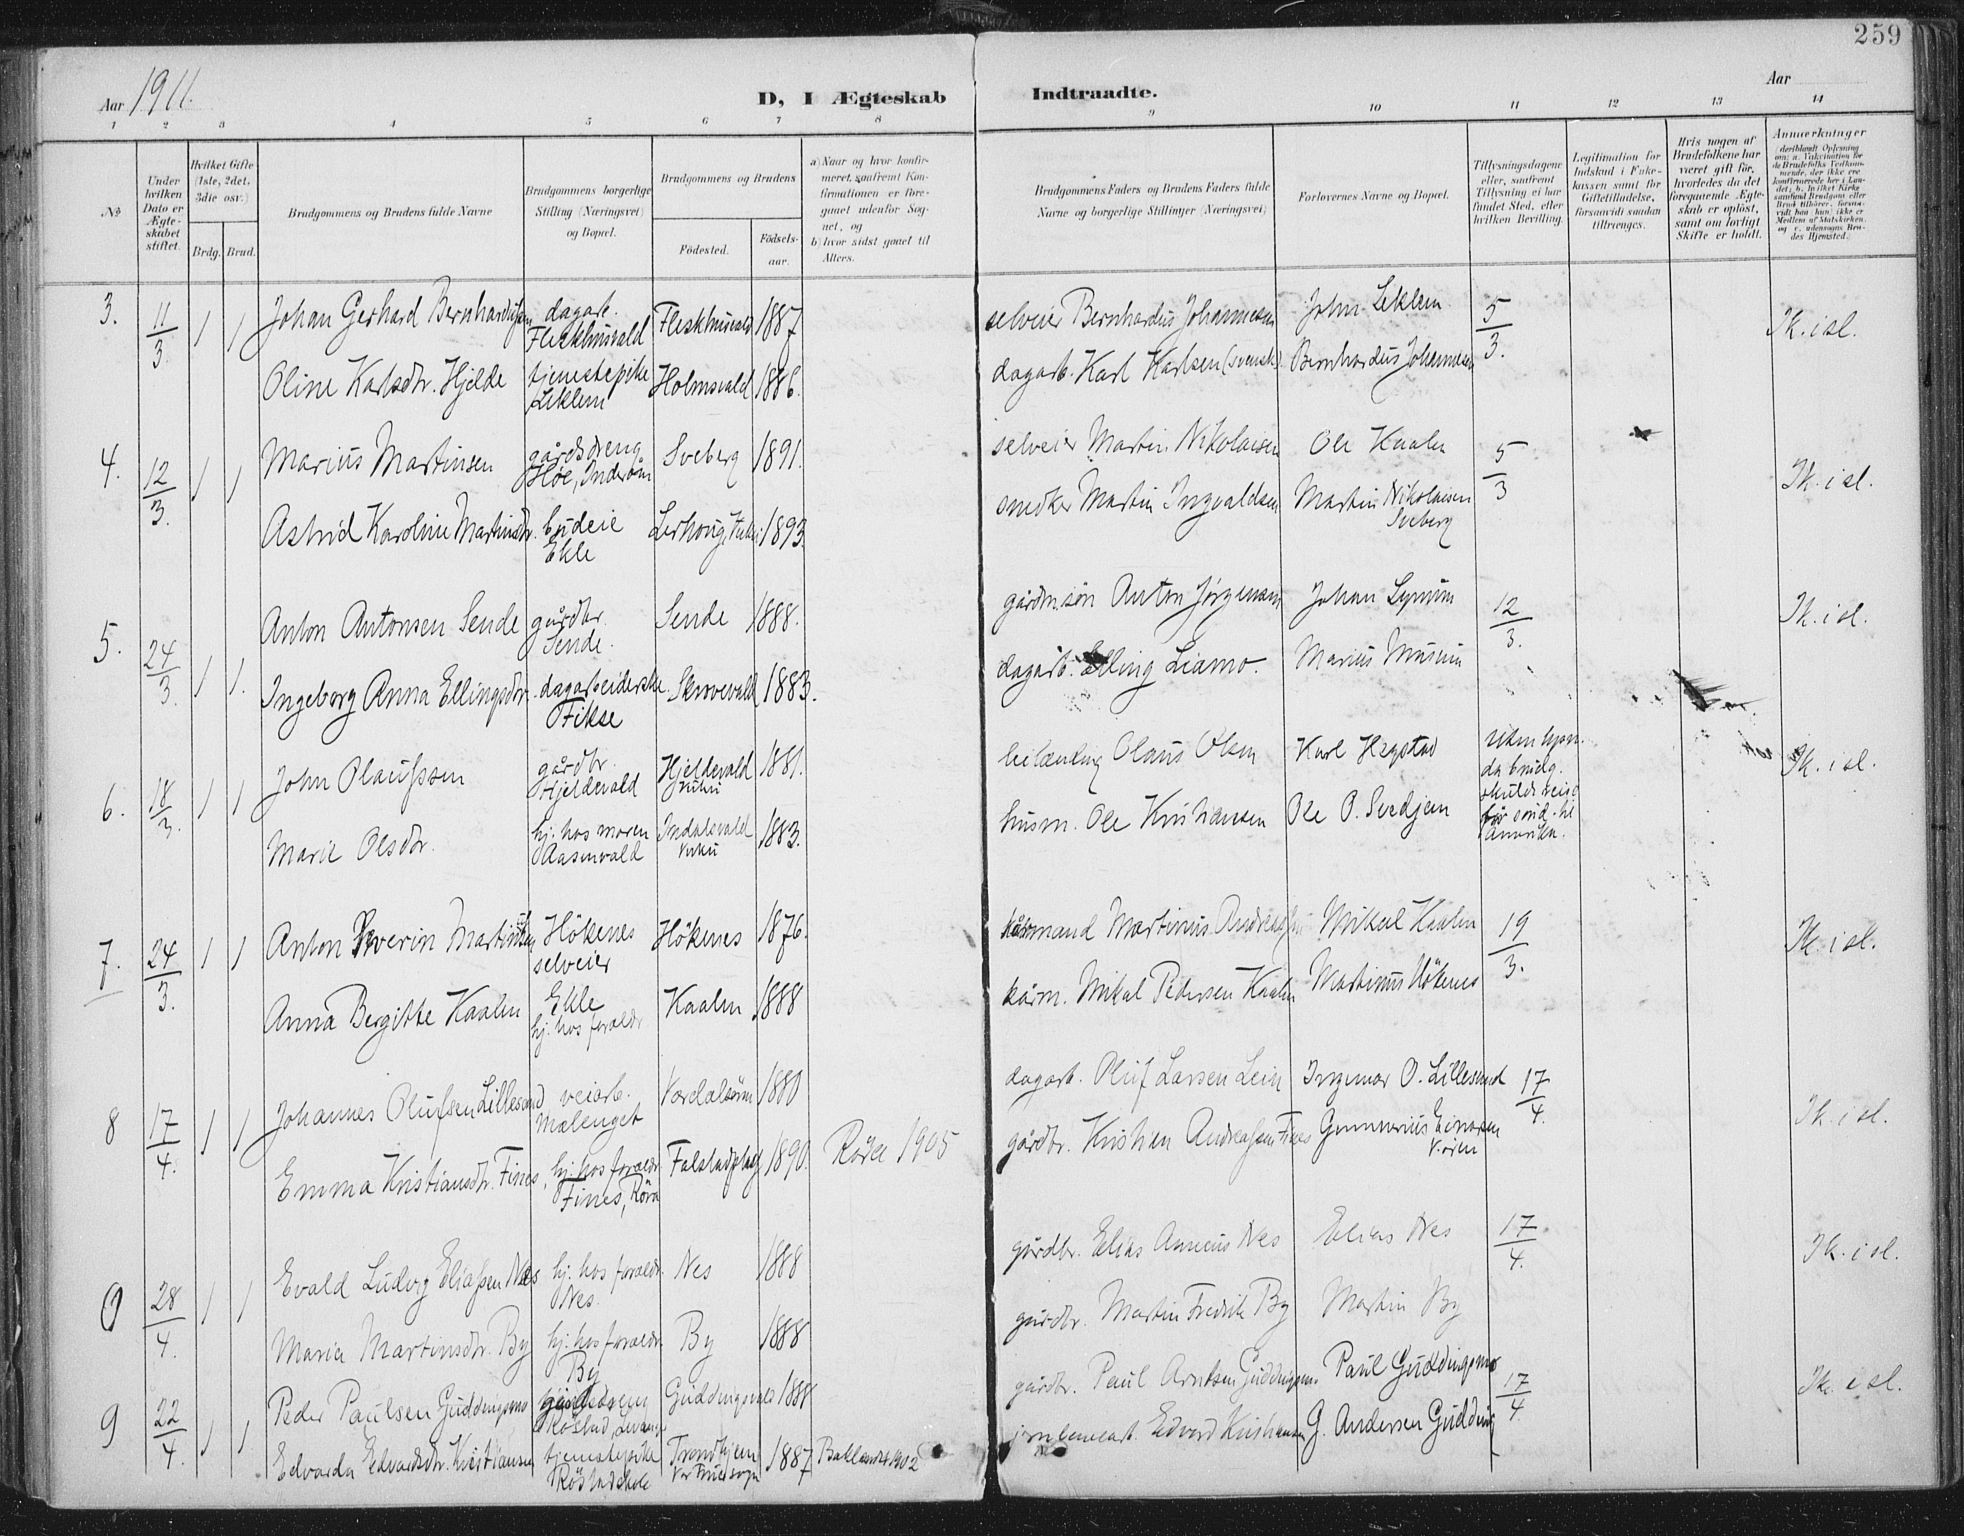 259
Aar 1911.
D, I Ægteskab Indtraadte.
Aar
1 2 3 4 5 6 7 8 9 10 11 12 13 14
№
Under hvilken Dato er Ægteskabet stiftet.
Hvilket Gifte (1ste, 2det, 3die osv.)
Brdg. Brud.
Brudgommens og Brudens fulde Navne
Brudgommens borgerlige Stilling (Næringsvei) og Bopæl.
Brudgommens og Brudens
Fødested.
Fødsels-aar.
a) Naar og hvor konfirmeret, saafremt Konfirmationen er foregaaet udenfor Sognet, og
b) hvor sidst gaaet til Alters.
Brudgommens Faders og Brudens Faders fulde Navne og borgerlige Stillinger (Næringsvei)
Forlovernes Navne og Bopæl.
Tillysningsdagene eller, saafremt Tillysning ei har fundet Sted, efter hvilken Bevilling.
Legitimation for Indskud i Enkekassen samt for Giftetilladelse, forsaavidt saadan tiltrænges.
Hvis nogen af Brudefolkene har været gift før, hvorledes da det foregaaende Ægteskab er opløst, samt om lovligt Skifte er holdt.
Anmærkninger
3. 11/3 1 1 Johan Gerhard Bernhardussen dagarb. Fleskhusvald Fleskhusvald 1887 selveier Bernhardus Johannesen John Leklem 5/3. Ik. i sl.
Oline Karlsdtr. Hjelde tjenestepike Leklem Holmsvald 1886. dagarb. Karl Karlsen (svensk). Bernhardus Johannesen
4. 12/3. 1 1 Marius Martinsen gårdsdreng Höe, Inderöen Sveberg 1891. selveier Martin Nikolaisen Ole Kaalen 5/3 Ik. i sl.
Astrid Karoline Martinsdtr. budeie Ekle 1893. snedker Martin Ingvaldsen Martin Nikolaisen Sveberg
5. 24/3. 1 1. Anton Antonsen Sende gårdbr. Sende. Sende 1888. Anton Jørgensen Johan 12/3. Ik. i sl.
Ingeborg Anna Ellingsdtr. dagarbeiderske Fikse Skrovevald 1883. dagarb. Elling Liamo. Marius Musum
6. 18/3. 1 1 John Olaussen gårdbr. Hjeldevald Hjeldevald Vuku 1881. leilænding Olaus Olsen Karl Hegstad uten lysn. da brudg. skulde reise før sønd. til Amerika. Ik. i sl.
Marie Olsdtr. hj. hos moren Aasenvald Indalsvald Vuku 1883. husm. Ole Kristiansen Ole P. Svedjan
7. 24/3. 1 1 Anton Severin Martinusen Hökenes selveier Hökenes 1876. kårmand Martinus Andreassen Mikal Kaalen 19/3. Ik. i sl.
Anna Bergitte Kaalen Ekle hj. hos forældr. Kaalen 1888 kårm. Mikal Pedersen Kaalen Martinus Hökenes
8 17/4. 1 1 Johannes Olufsen Lillesund veiarb. Mælenget Værdalsören 1880 dagarb. Oluf Larsen Lein Ingemar O. Lillesund 17/4. Ik. i sl.
Emma Kristiansdtr. Fines, hj. hos forældr. Fines, Röra Falstadplads 1890. Röra 1905 gårdbr. Kristian Andreassen Fines Gunnerius Einarsen Vören
28/4. 1 1 Evald Ludvig Eliassen Næs hj. hos forældr. Nes. Nes 1888 gårdbr. Elias Anneus Nes Elias Nes 17/4. Ik. i sl.
Maria Martinsdtr. By hj. hos forældr. By By 1888 gårdbr. Martin Fredrik By Martin By
9 22/4. 1 1 Peder Paulsen Guddingsmo Guddingsvald 1888 gårdbr. Paul Arntsen Guddingsmo Paul Guddingsmo 17/4 Ik. i sl.
Edvarda Edvardsdtr. Kristiansen tjenestepike Röstadskole Trondhjem Vor Frue sogn 1887 Baklandet 1902 Edvard Kristiansen G. Andersen Gudding